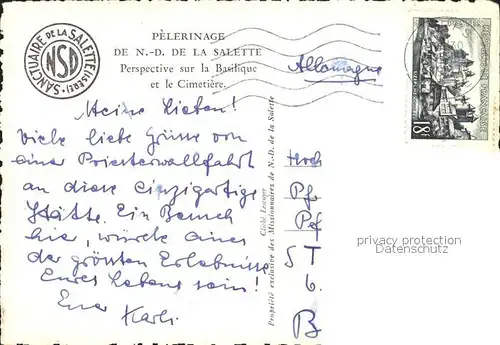 PÈLERINAGE
DE N.-D. DE LA SALETTE
Perspective sur la Basilique
et le Cimetière.
SANCTUAIRE DE LA SALETTE (ISÈRE)
NSD
Allemagne
18F
Meine Lieben!
Viele liebe Grüsse von
einer Priesterwallfahrt
an diese einzigartige
Stätte. Ein Besuch
hier, würde eines
der grössten Erlebnisse
Eures Lebens sein!
Euer Karl.
Cliché Lescuyer
Propriété exclusive des Missionnaires de N.-D. de la Salette
Hoch
Pf
Pf
S T
b.
B
privacy protection
Datenschutz